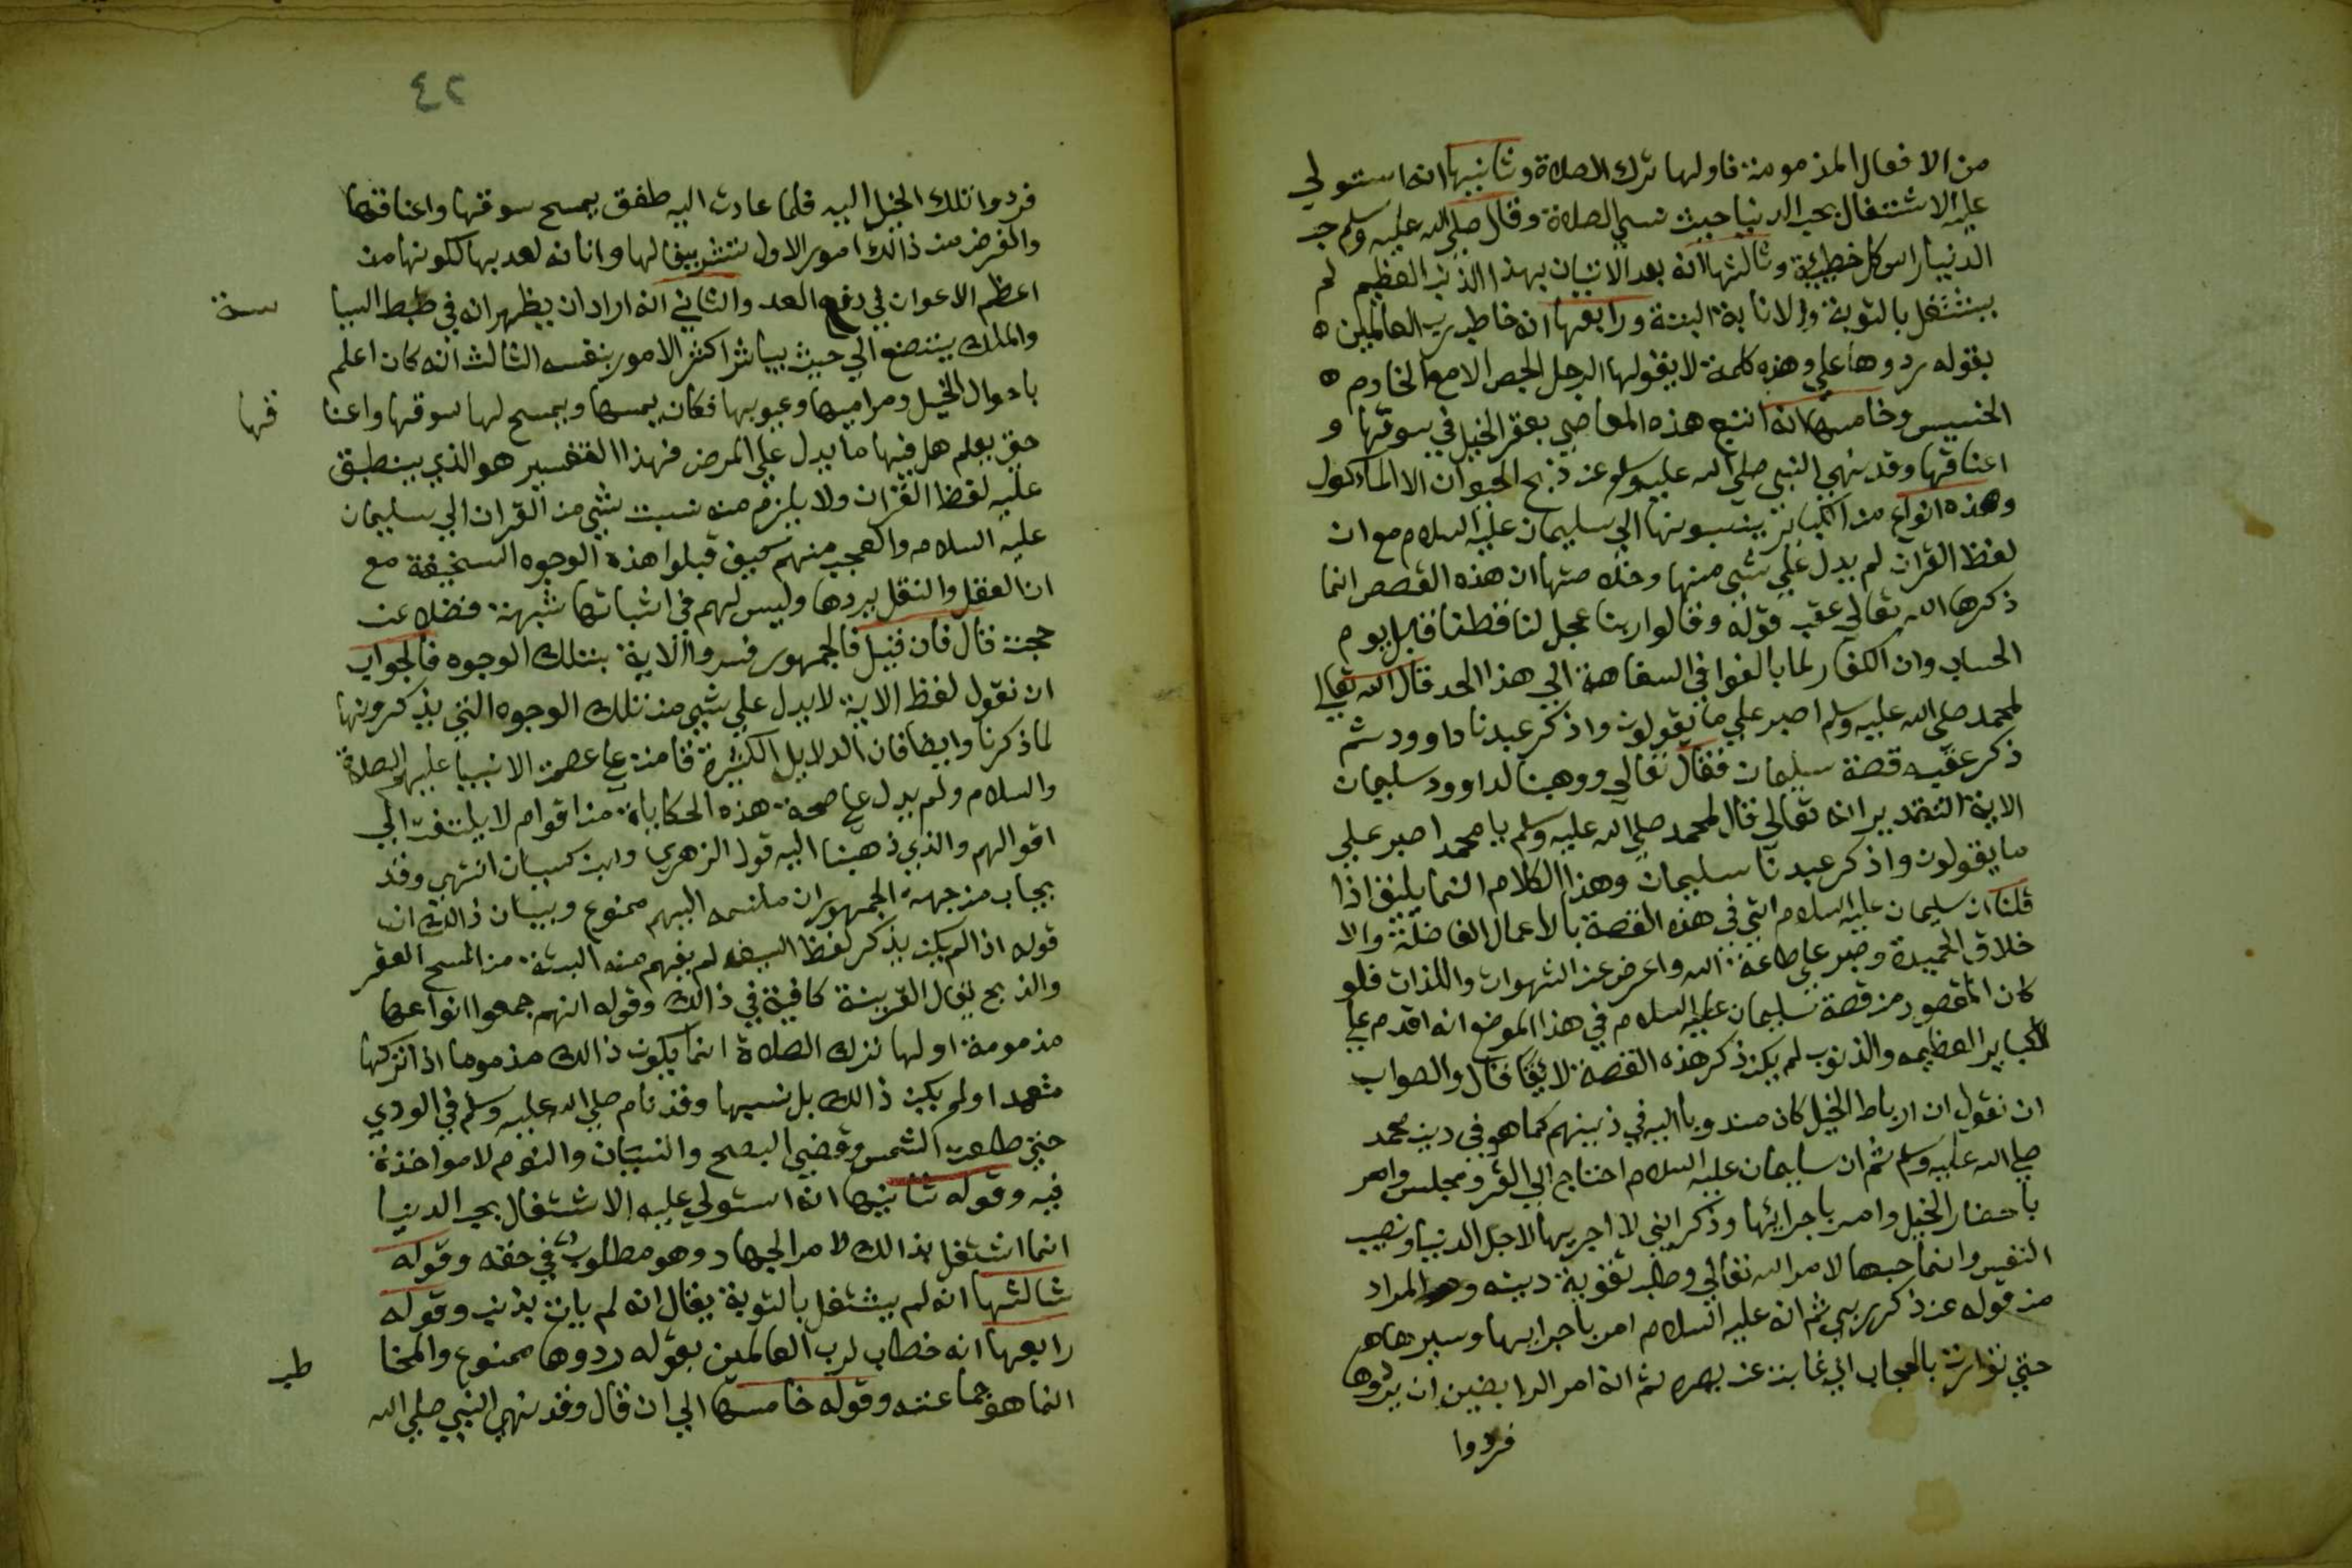 من الافعال المذمومة فاولها ترك الصلاة وثانيها انه استولي
عليه الاشتغال بحب الدنيا حيث نسي الصلاة وقال صلي الله عليه وسلم حب
الدنيا راس كل خطيئة وثالثها انه بعد الاتيان بهذا الذنب العظيم لم
يشتغل بالتوبة والانابة البتة ورابعها انه خاطب رب العالمين
بقوله ردوها علي وهذه كلمة لا يقولها الرجل الحصر الا مع الخادم
الخسيس وخامسها انه اتبع هذه المعاصي بعقر الخيل في سوقها و
اعناقها وقد نهي النبي صلي الله عليه وسلم عن ذبح الحيوان الا الماكول
وهذه انواع من الكباير ينسبونها الي سليمان عليه السلام مع ان
لفظ القران لم يدل علي شيي منها وخلاصتها ان هذه القصص انما
ذكرها الله تعالي عقب قوله وقالوا ربنا عجل لنا قطنا قبل يوم
الحساب وان الكفار لما بالغوا في السفاهة الي هذا الحد قال الله تعالي
لمحمد صلي الله عليه وسلم اصبر علي ما يقولون واذكر عبدنا داوود ثم
ذكر عقبه قصة سليمان فقال تعالي ووهبنا لداوود سليمان
الاية التقدير انه تعالي قال لمحمد صلي الله عليه وسلم يا محمد اصبر علي
ما يقولون واذكر عبدنا سليمان وهذا الكلام انما يليق اذا
قلنا ان سليمان عليه السلام اتي في هذه القصة بالاعمال الفاضلة والا
خلاق الحميدة وصبر علي طاعة الله واعرض عن الشهوات واللذات فلو
كان المقصود من قصة سليمان عليه السلام في هذا الموضع انه اقدم علي
الكباير العظيمه والذنوب لم يكن ذكر هذه القصة لائقا قال والصواب
ان نقول ان ارباط الخيل كان مندوبا اليه في دينهم كما هو في دين محمد
صلي الله عليه وسلم ثم ان سليمان عليه السلام احتاج الي الغزو فجلس وامر
باحضار الخيل وامر باجرائها وذكر اني لا اجريها لاجل الدنيا ونصيب
النفس وانما حبها لامر الله تعالي وطلب تقوية دينه وهو المراد
من قوله عن ذكر ربي ثم انه عليه السلام امر باجرايها وسيرها
حتي توارت بالحجاب اي غابت عن بصره ثم انه امر الرايضين ان يردوها
فردوا
٤٢
فردوا تلك الخيل اليه فلما عادت اليه طفق يمسح سوقها واعناقها
والغرض من ذالك امور الاول تشريفا لها وانانه لعد بها لكونها من
اعظم الاعوان في دفع العد والثاني انه اراد ان يظهر انه في ضبط السيا سة
والملك يتضع الي حيث يباشر اكثر الامور بنفسه الثالث انه كان اعلم
باحوال الخيل ومرامها وعيوبها فكان يمسها ويمسح لها سوقها واعنا قها
حتي يعلم هل فيها ما يدل علي المرض فهذا التفسير هو الذي ينطبق
عليه لفظ القران ولا يلزم منه نسبت شيي من القران الي سليمان
عليه السلام والعجب منهم كيف قبلوا هذه الوجوه السخيفة مع
ان العقل والنقل يردها وليس لهم في اثباتها شبهة فضلا عن
حجت قال فان قيل فالجمهور فسروا الاية بتلك الوجوه فالجواب
ان نقول لفظ الاية لا يدل علي شيي من تلك الوجوه التي يذكرونها
لما ذكرنا وايضا فان الدلايل الكثيرة قامت علي عصمت الانبيا عليهم الصلاة
والسلام ولم يدل علي صحة هذه الحكاياة من اقوام لا يلتفت الي
اقوالهم والذي ذهبنا اليه قول الزهري وابن كيسان انتهي وقد
يجاب من جهة الجمهور ان ما نسبه اليهم ممنوع وبيان ذالك ان
قوله اذا لم يكن يذكر لفظ السيف لم يفهم منه البتة من المسح العقر
والذبح يقال القرينة كافية في ذالك وقوله انهم جمعوا انواعها
مذمومة اولها ترك الصلاة انما يكون ذالك مذموما اذا تركها
متعمدا ولم يكن ذالك بل نسيها وقد نام صلي الله عليه وسلم في الودي
حتي طلعت الشمس وقضي الصبح والنسيان والنوم لا مواخذة
فيه وقوله ثانيها انه استولي عليه الاشتغال بحب الدنيا
انما اشتغل بذالك لامر الجهاد وهو مطلوب في حقه وقوله
ثالثها انه لم يشتغل بالتوبة يقال انه لم يات بذنب وقوله
رابعها انه خطاب لرب العالمين بقوله ردوها ممنوع والمخا طب
انما هو جماعته وقوله خامسها الي ان قال وقد نهي النبي صلي الله